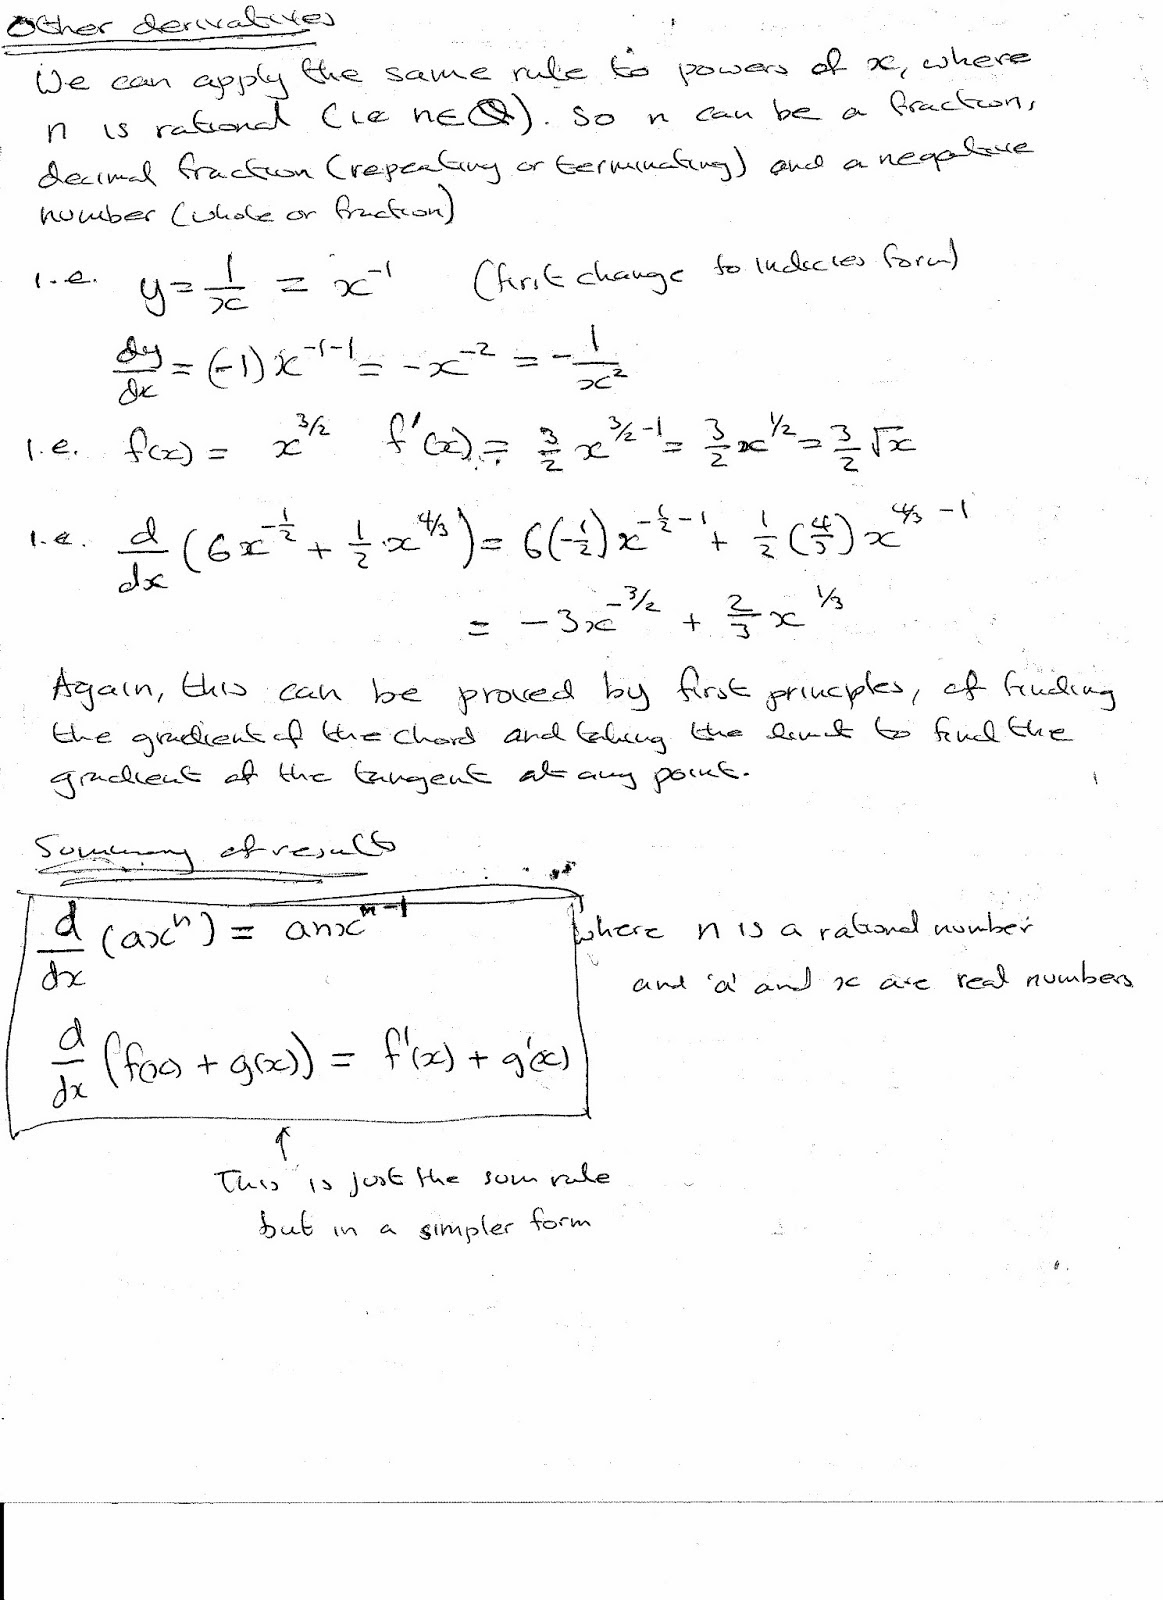 Other derivatives
We can apply the same rule to powers of x, where
n is rational (ie n∈Q). So n can be a fraction,
decimal fraction (repeating or terminating) and a negative
number (whole or fraction)
i.e. y = 1/x = x^-1 (first change to indecies form)
dy/dx = (-1)x^-1-1 = -x^-2 = -1/x^2
i.e. f(x) = x^3/2 f'(x) = 3/2 x^3/2-1 = 3/2 x^1/2 = 3/2 √x
i.e. d/dx (6x^-1/2 + 1/2 x^4/3) = 6(-1/2)x^-1/2-1 + 1/2 (4/3) x^4/3-1
= -3x^-3/2 + 2/3 x^1/3
Again, this can be proved by first principles, of finding
the gradient of the chord and taking the limit to find the
gradient of the tangent at any point.
Summary of results
d/dx (ax^n) = anx^n-1 where n is a rational number
and 'a' and x are real numbers
d/dx (f(x) + g(x)) = f'(x) + g'(x)
↑
This is just the sum rule
but in a simpler form